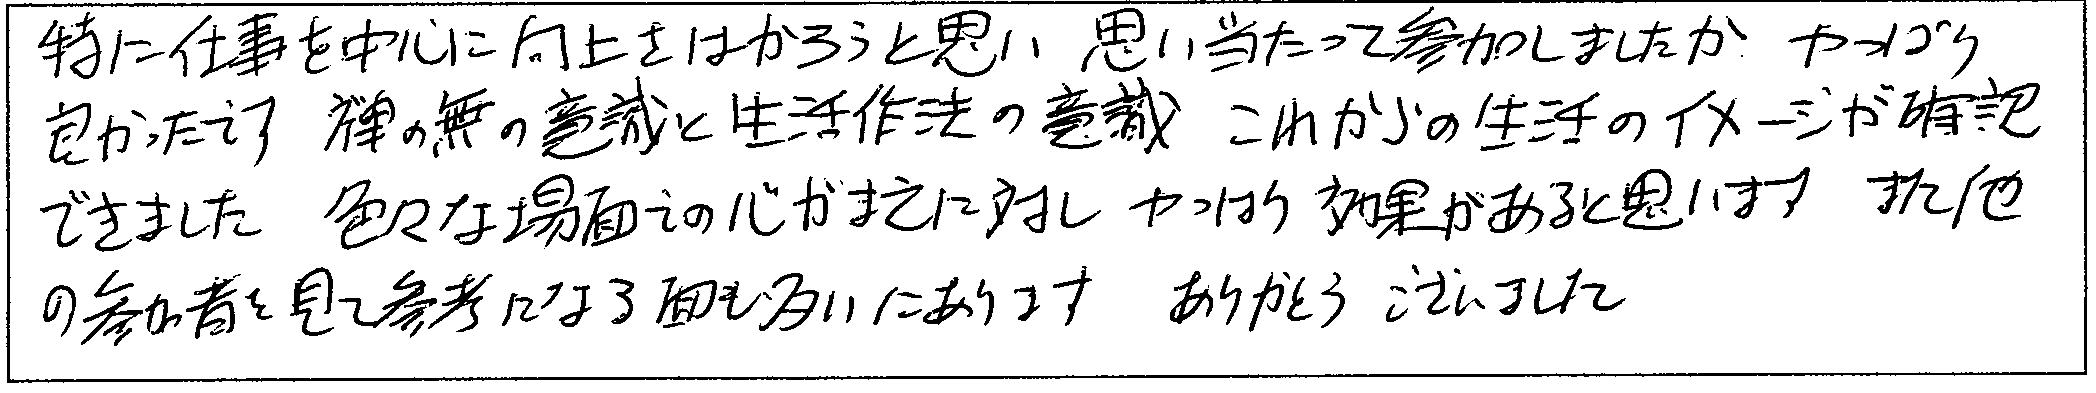 特に仕事を中心に向上をはかろうと思い 思い当たって参加しましたが やっぱり
良かったです 禅の無の意識と生活作法の意識 これからの生活のイメージが確認
できました 色々な場面での心がまえに対し やっぱり効果があると思います また他
の参加者を見て参考になる面も多いにあります ありがとうございました